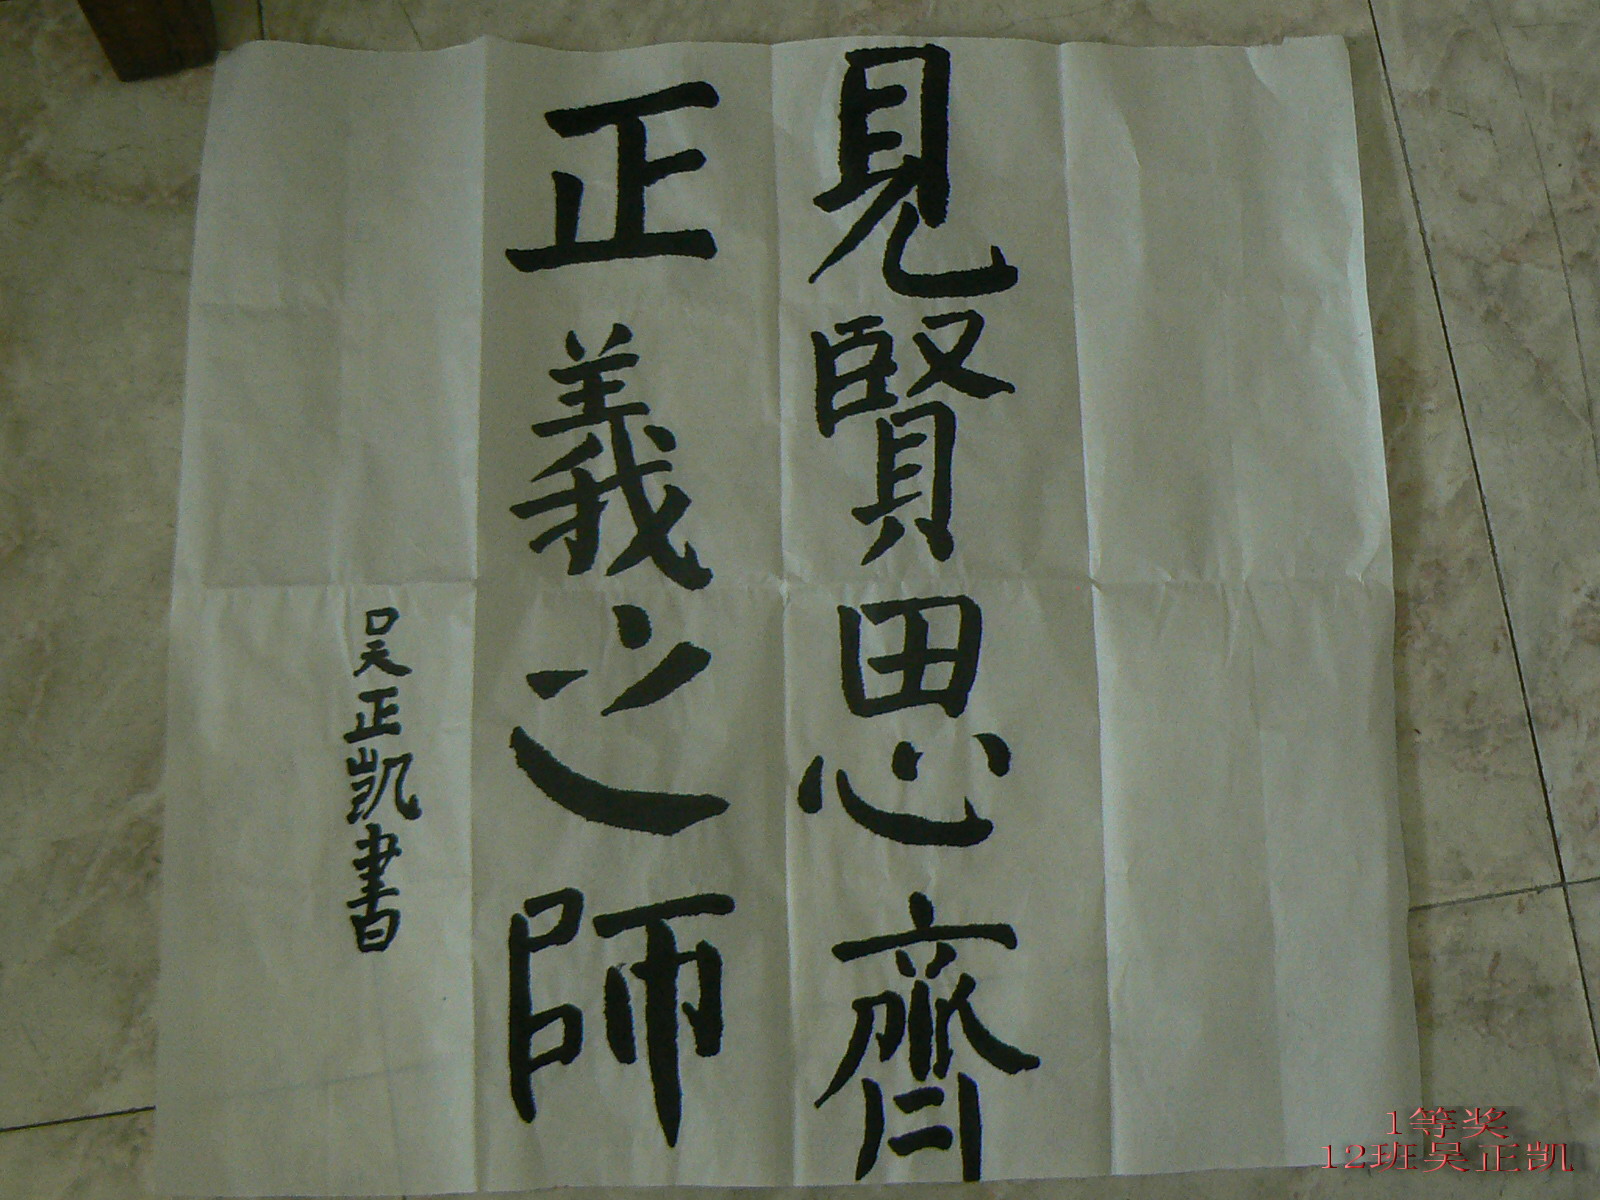 見賢思齊
正義之師
吴正凯書
1等奖
12班吴正凯